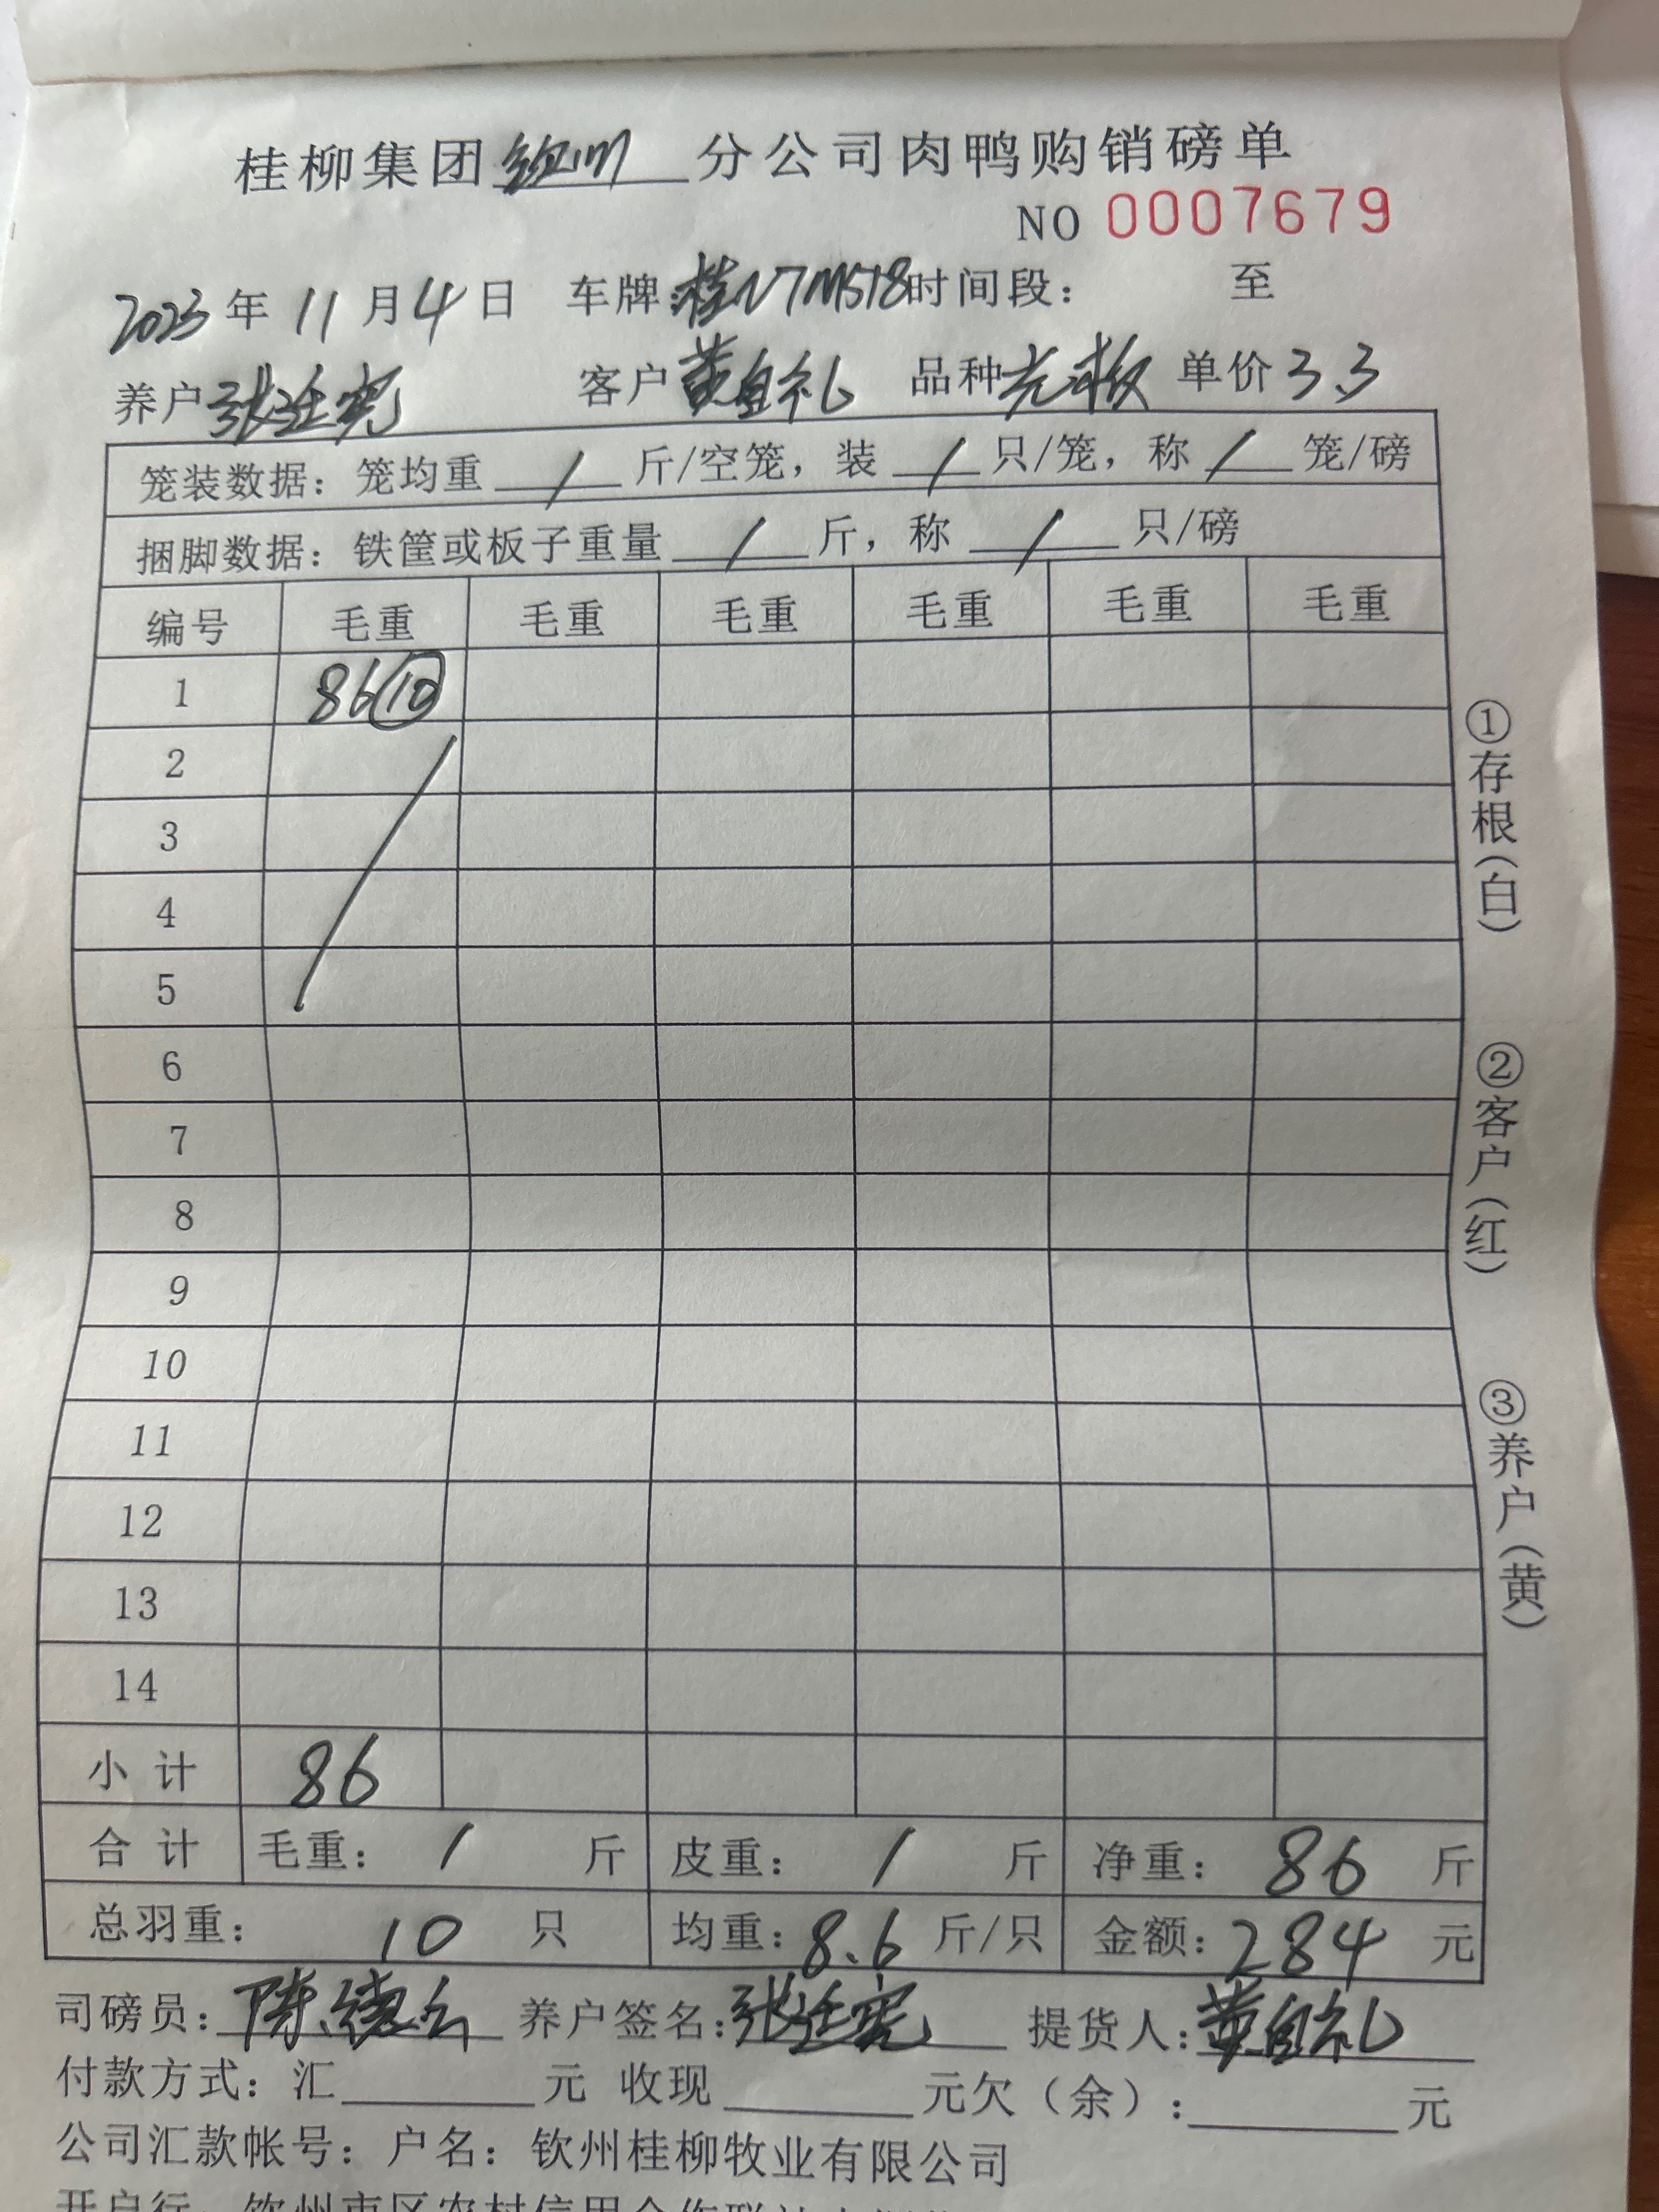 桂柳集团钦州分公司肉鸭购销磅单
NO 0007679
2023年11月4日 车牌:桂N7M518时间段: 至
养户张廷宪 客户黄自礼 品种 单价3.3
笼装数据:笼均重 / 斤/空笼,装 / 只/笼,称 / 笼/磅
捆脚数据:铁筐或板子重量 / 斤,称 / 只/磅
编号 毛重 毛重 毛重 毛重 毛重 毛重
1 86⑩
2
3
4
5
6
7
8
9
10
11
12
13
14
小计 86
合计 毛重: / 斤 皮重: / 斤 净重: 86 斤
总羽重: 10 只 均重:8.6斤/只 金额:284元
司磅员:陈 养户签名:张廷宪 提货人:黄自礼
付款方式:汇 元 收现 元欠(余): 元
公司汇款帐号:户名:钦州桂柳牧业有限公司
开户行:钦州市区农村信用合作联社
①存根(白)
②客户(红)
③养户(黄)